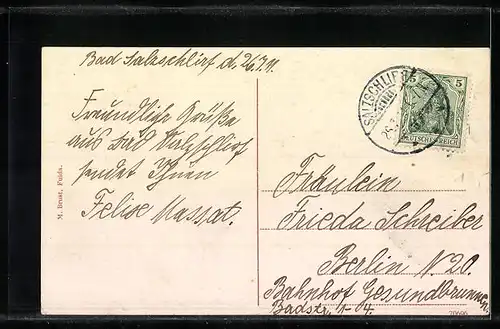 Bad Salzschlirf d. 26.7.11.
Freundliche Grüße
aus Bad Salzschlirf
sendet Ihnen
Felix Massat.
M. Brust, Fulda.
SALZSCHLIRF
5
DEUTSCHES REICH
Fräulein
Frieda Schreiber
Berlin N 20.
Bahnhof Gesundbrunnen
Badstr. 1-04.
70606